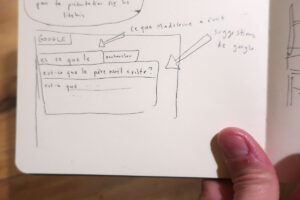 par la présentation sur les
GOOGLE
ce que Madeleine a écrit
suggestions
de google
es ce que le
rechercher
est-ce que le père noël existe?
est-ce que